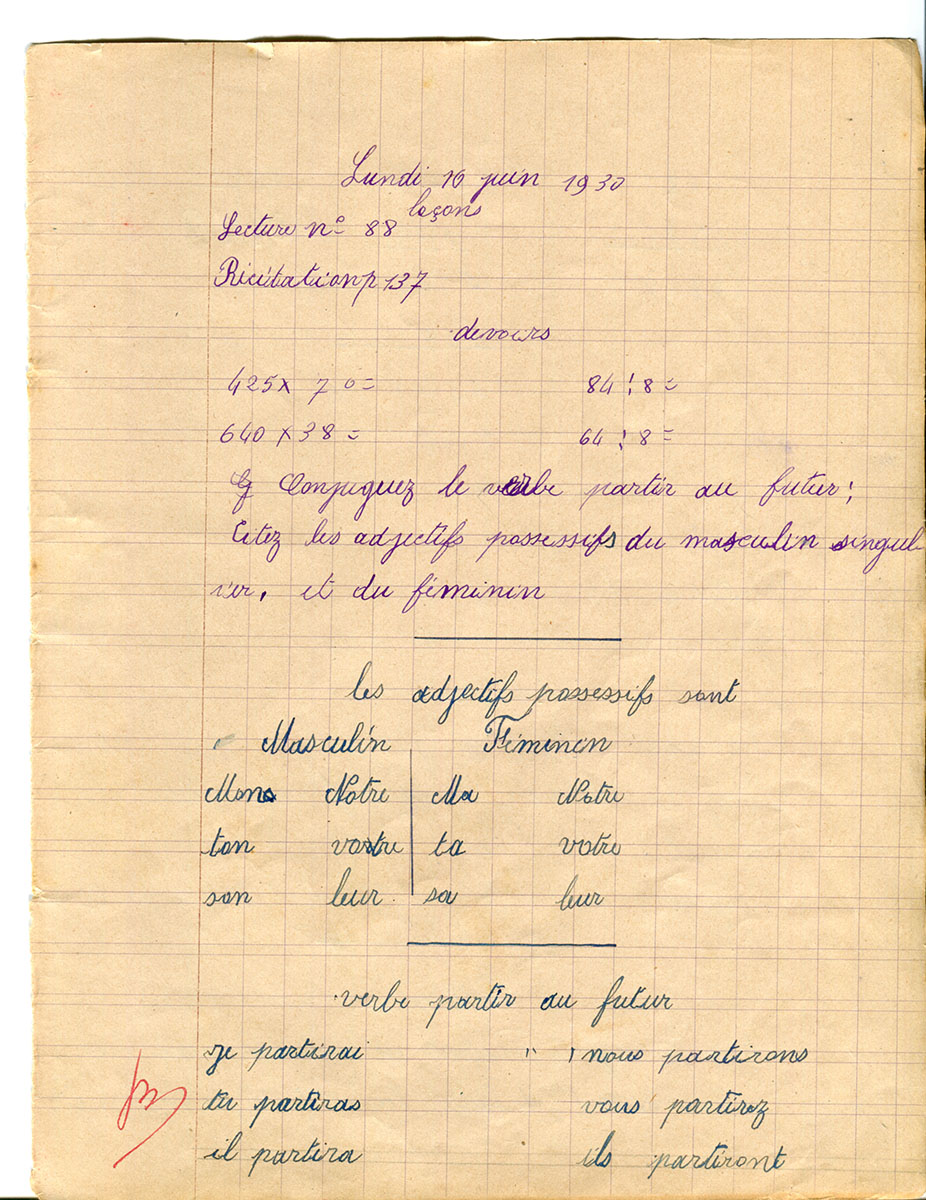 Lundi 16 juin 1930
leçons
Lecture n° 88
Récitation p 137
devoirs
425 x 70 =
84 : 8 =
640 x 38 =
64 : 8 =
Conjuguez le verbe partir au futur ;
Citez les adjectifs possessifs du masculin singul-
ier, et du féminin
les adjectifs possessifs sont
Masculin Féminin
Mon Notre Ma Notre
ton votre ta votre
son leur sa leur
verbe partir au futur
je partirai " nous partirons
tu partiras vous partirez
il partira ils partiront